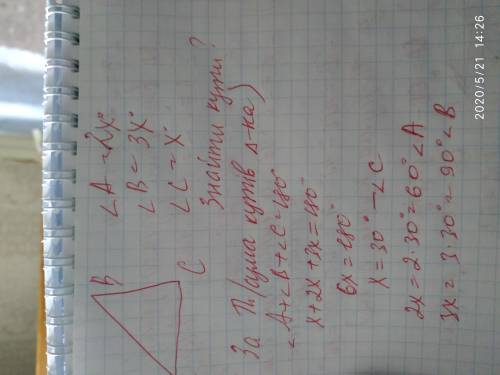 ∠A = 2x°
∠B = 3x°
∠C = x°
Знайти кути?
За т. (сума кутів Δ-ка)
∠A+∠B+∠C=180°
x+2x+3x=180°
6x=180°
x=30° - ∠C
2x=2·30°=60° ∠A
3x=3·30°=90° ∠B
B
C
2020/5/21 14:26